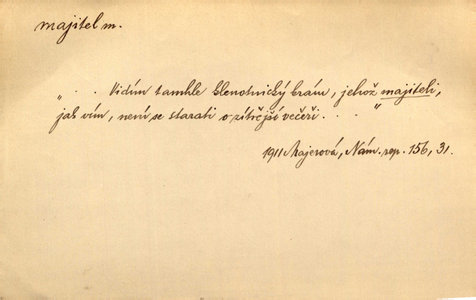 majitel m.
„ . . Vidím tamhle klenotnický krám, jehož majiteli,
jak vím, není se starati o zítřejší večeři . . . "
1911 Majerová, Nám. rep. 156, 31.